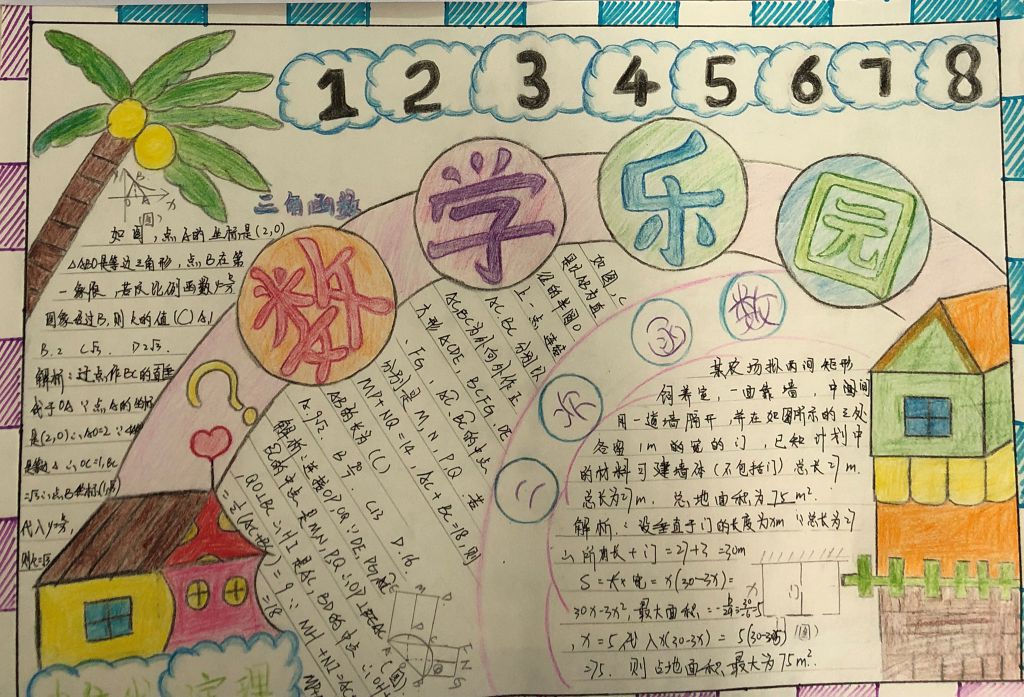 1 2 3 4 5 6 7 8
数学乐园
三角函数
如图,点A的坐标是(2,0)
△ABO是等边三角形,点B在第
一象限,若反比例函数y=k/x
图象经过B,则k的值(C) A.1
B.2 C√3. D2√3.
解析:过点作BC的垂
是(2,0)∴AO=2
∴OC=1,BC
=√3∴点B坐标(1,√3)
代入y=k/x,
则k=√3
如图C
径的半圆O
上一点,连结
AC BC,分别以
AC BC为边向外作正
方形ACDE,BCFG,DE
,FG,
分别是M,N,P,Q 若
MP+NQ=14,AC+BC=18,则
AB的长为(C)
A.9√2. B C13 D.16.
解析:连接OP,OQ∵DE,FG
的中点是M,N,P,Q∴OP⊥AC
OQ⊥BC∴H,I是AC,BD的中点∴OH
=½(AC+BC)=9∵MH+NI=AC
=18
二次函数
某农场拟两间矩形
饲养室,一面靠墙,中间间
用一道墙隔开,并在如图所示的三处
各留1m的宽的门,已知计划中
的材料可建墙体(不包括门)总长27m.
总长为27m,总地面积为75m².
解析∵设垂直于门的长度为xm∵总长为27
∴所有长+门=27+3=30m
S=长×宽=x(30-3x)=
30x-3x²,最大面积
x=5代入x(30-3x)=
=75.则占地面积最大为75m².
定理